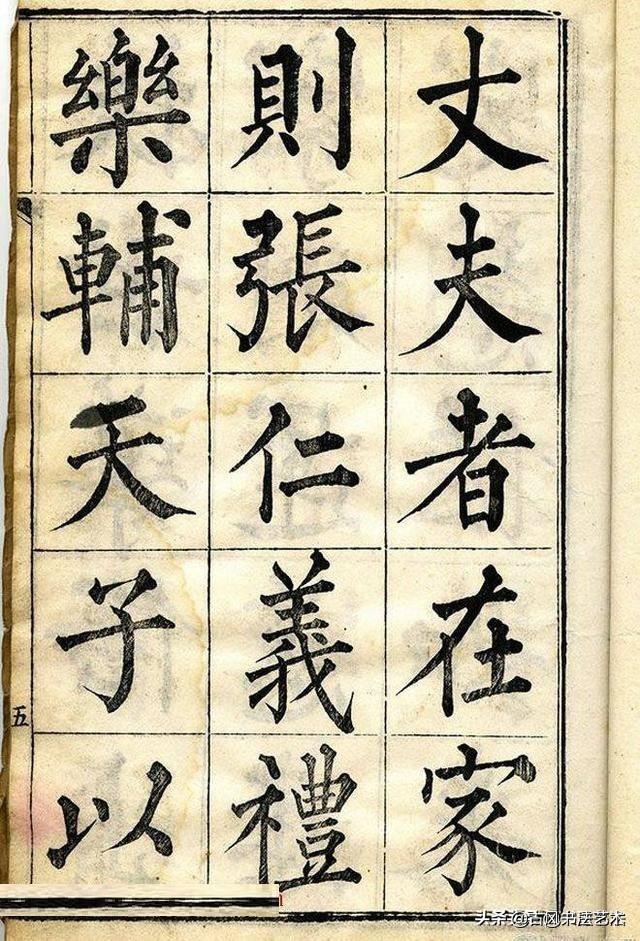 丈夫者在家
則張仁義禮
樂輔天子以
五
头条@古风书法艺术